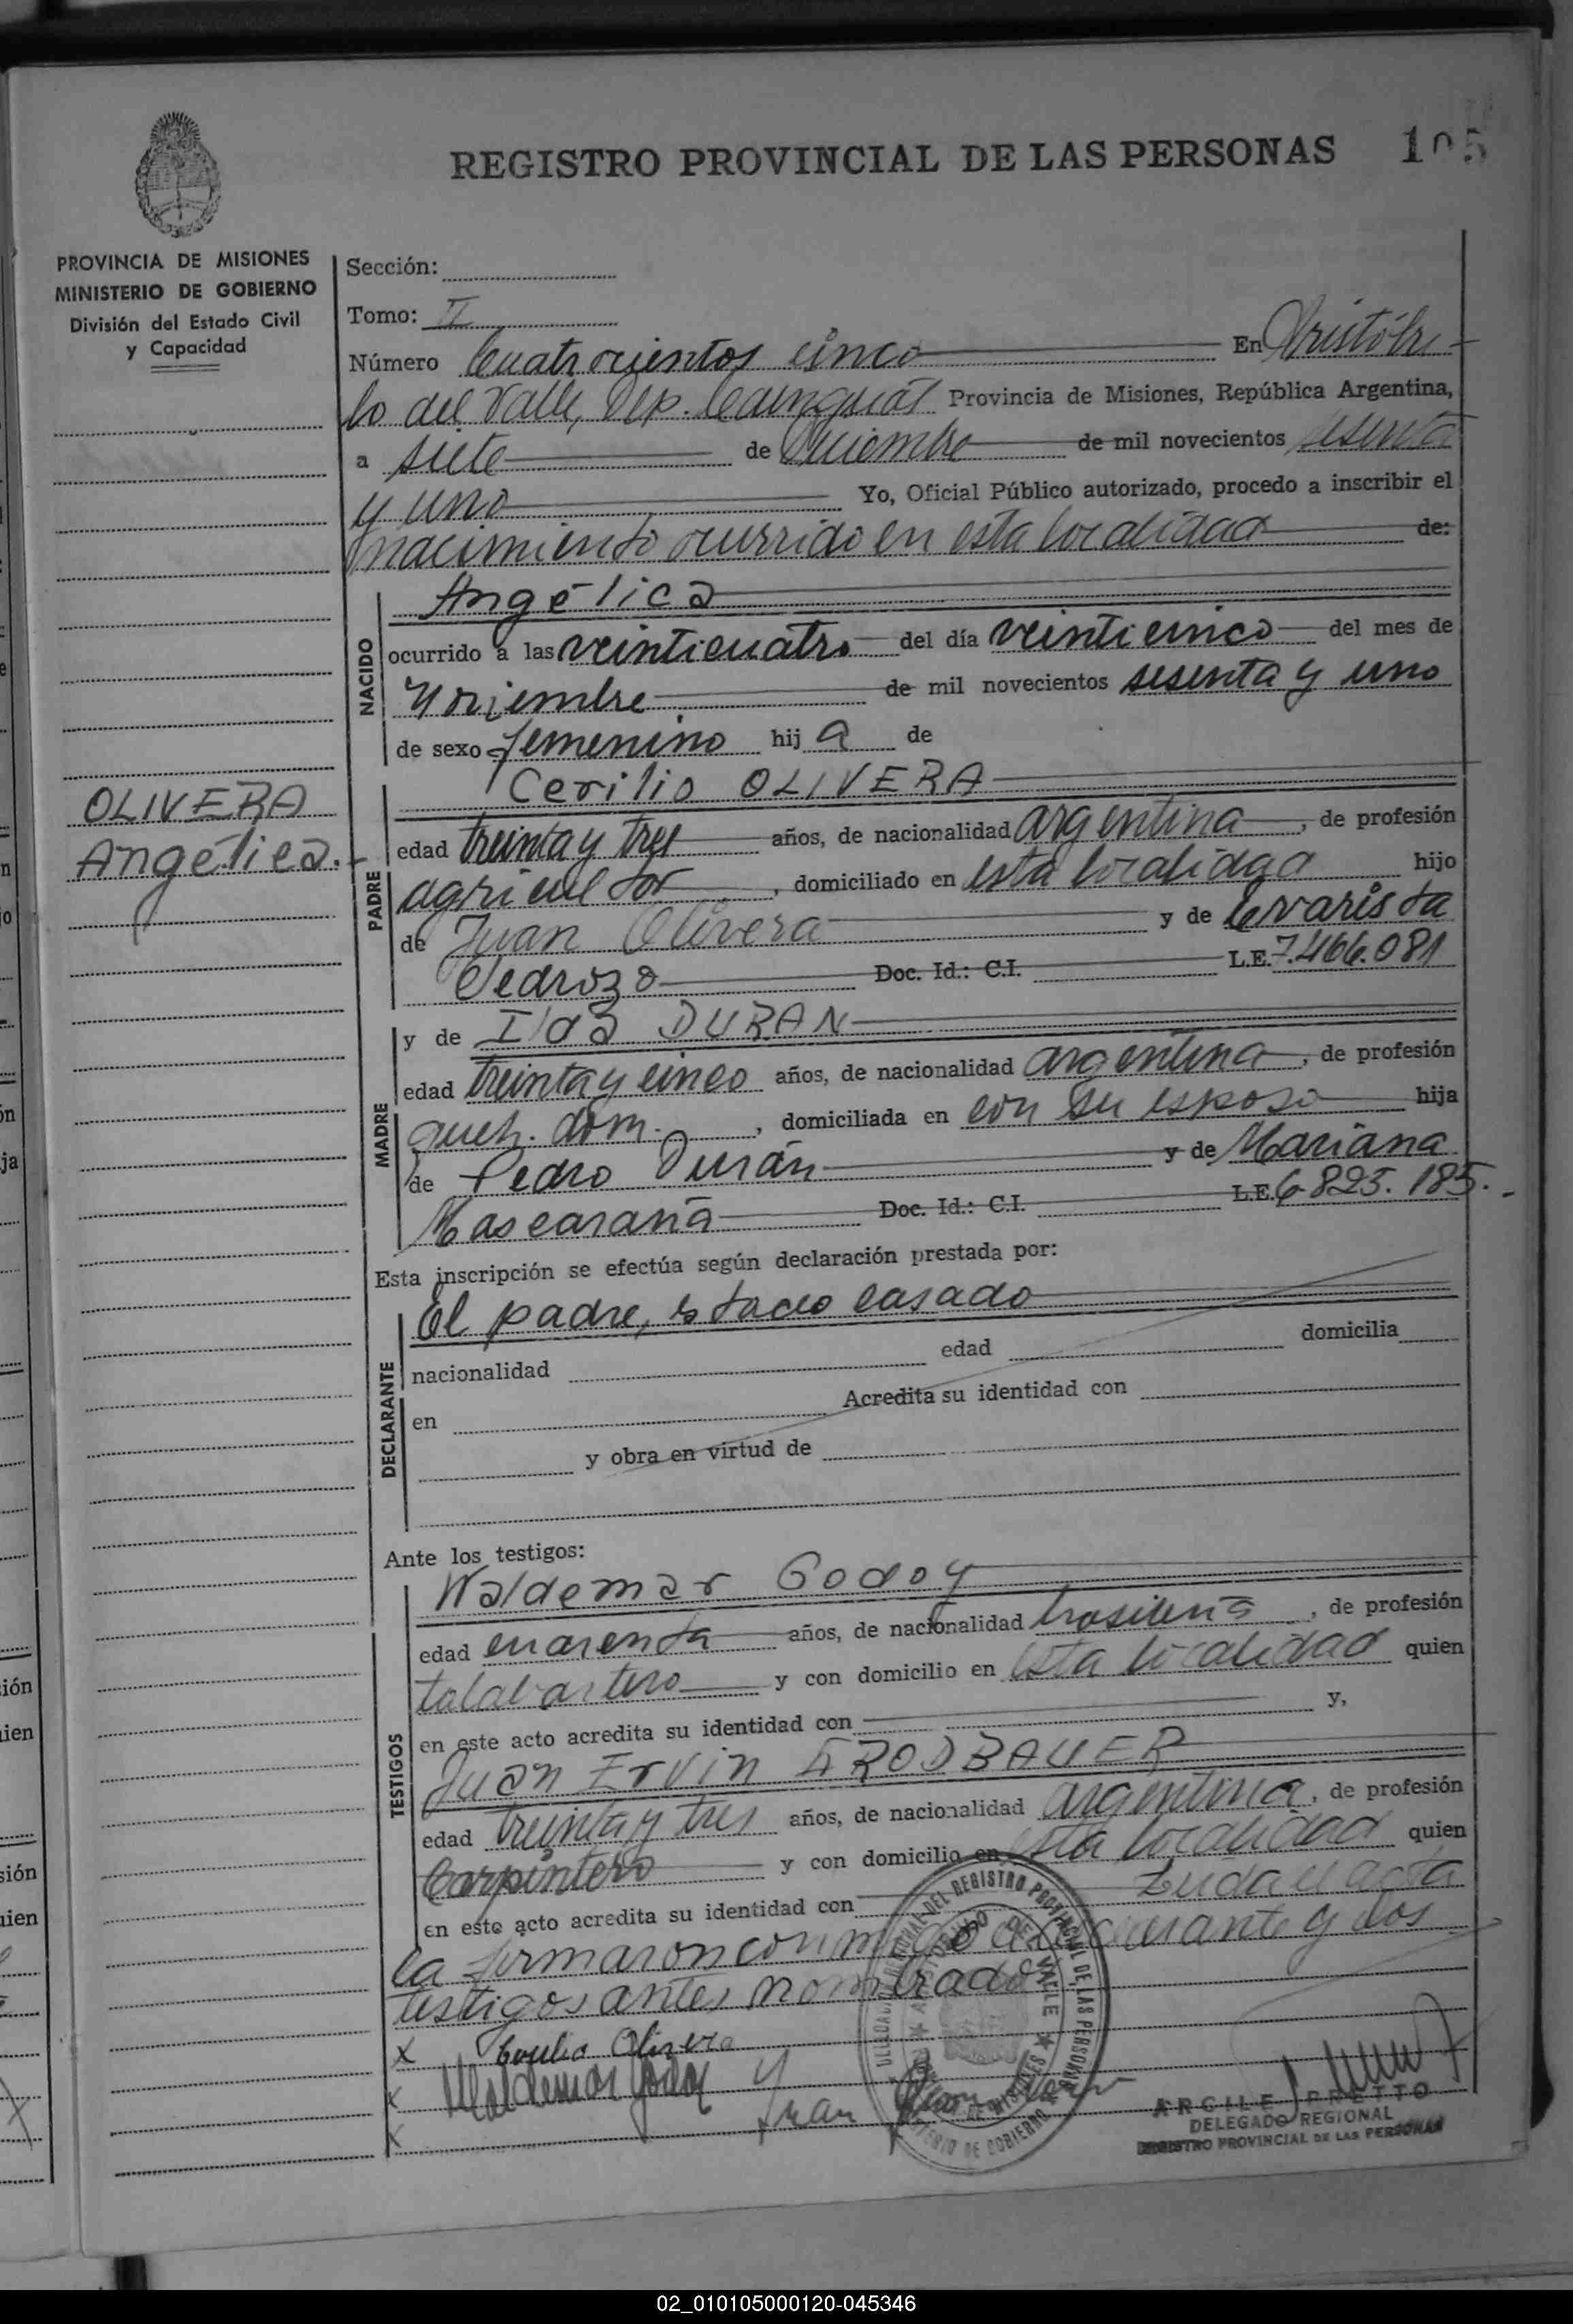 REGISTRO PROVINCIAL DE LAS PERSONAS 105
PROVINCIA DE MISIONES
MINISTERIO DE GOBIERNO
División del Estado Civil
y Capacidad
Sección:
Tomo: II
Número Cuatrocientos cinco En Aristóbu-
lo del Valle, Dep. Cainguás Provincia de Misiones, República Argentina,
a siete de Diciembre de mil novecientos sesenta
y uno Yo, Oficial Público autorizado, procedo a inscribir el
nacimiento ocurrido en esta localidad de:
NACIDO
Angélica
ocurrido a las veinticuatro del día veinticinco del mes de
Noviembre de mil novecientos sesenta y uno
de sexo femenino hij a de
OLIVERA
Angélica.-
PADRE
Cerilio OLIVERA
edad treinta y tres años, de nacionalidad argentina, de profesión
agricultor, domiciliado en esta localidad hijo
de Juan Olivera y de Evarista
Pedrozo Doc. Id.: C.I. L.E. 7.466.081
MADRE
y de Ilda DURAN
edad treinta y cinco años, de nacionalidad argentina, de profesión
queh. dom., domiciliada en con su esposo hija
de Pedro Durán y de Mariana
Mascaraña Doc. Id.: C.I. L.E. 6.823.185.-
Esta inscripción se efectúa según declaración prestada por:
DECLARANTE
El padre, estado casado
nacionalidad edad domicilia
en Acredita su identidad con
y obra en virtud de
Ante los testigos:
TESTIGOS
Waldemar Godoy
edad cuarenta años, de nacionalidad brasileña, de profesión
talabartero y con domicilio en esta localidad quien
en este acto acredita su identidad con y,
Juan Ervin BRODBAUER
edad treinta y tres años, de nacionalidad argentina, de profesión
Carpintero y con domicilio en esta localidad quien
en este acto acredita su identidad con Leída el acta
la firmaron conmigo declarante y los
testigos antes nombrado
x Cerilio Olivera
x Waldemar Godoy
x Juan
ARGILE PRETTO
DELEGADO REGIONAL
REGISTRO PROVINCIAL DE LAS PERSONAS
02_010105000120-045346